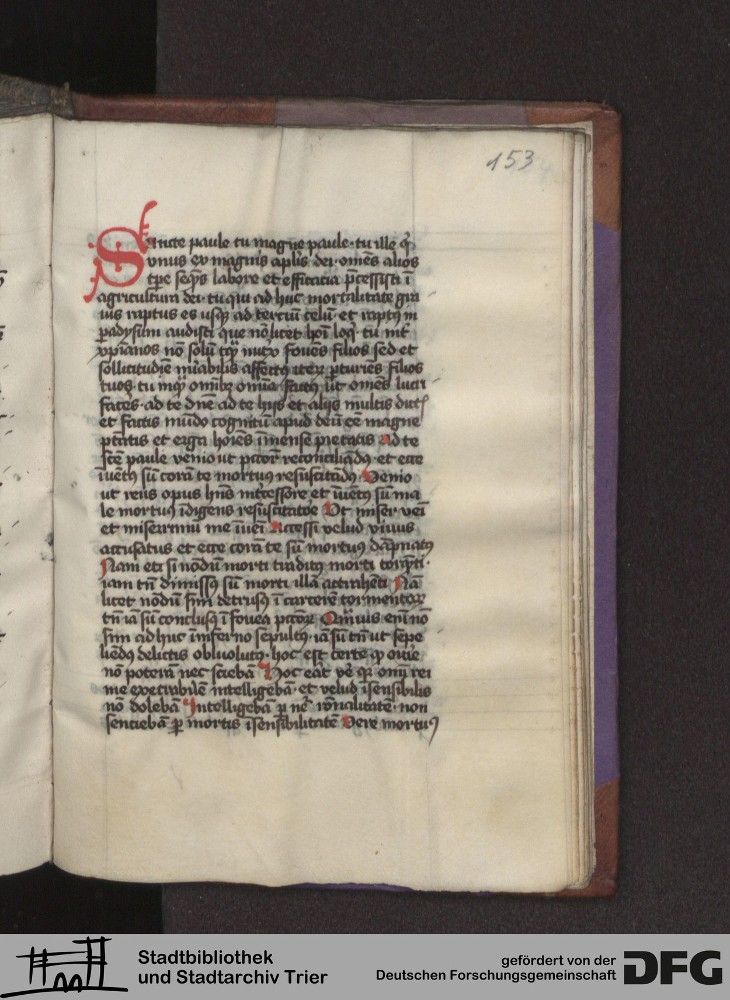 153
Sancte paule tu magne paule · tu ille q̃
vnus ex magnis aplis dei · om̃es alios
tp̃e seq̃s labore et efficacia p̃cessisti ĩ
agricultura dei · tu qui ad huc mortalitate gra
uis raptus es usq̨ ad terciũ celũ et raptꝰ in
padysum audisti que nõ licet hoĩ loqͥ tu int̃
xp̃ianos nõ solũ tq̃ nutˣ foues filios sed et
sollicitudĩe mͥabilis affectꝰ iterꝝ ꝑturies filios
tuos · tu inqͣ om̃ibꝫ om̃ia factꝰ ut om̃es lucri
faceres · ad te dñe ad te hijs et alijs multis dict̃
et factis mũdo cognitũ apud deũ eẽ magne
ptãtis et erga hoĩes ĩmense pietatis Ad te
sc̃e paule venio ut pccõr reconciliãdꝰ · et ecce
ĩuẽtꝰ sũ corã te mortuꝰ resuscitãdꝰ Venio
ut reus opus hñs ĩtercessore et ĩuẽtꝰ sũ ma
le mortuꝰ ĩdigens resuscitatõe Vt miser veĩ
et miserrimũ me ĩueĩ Accessi velud viuus
accusatus et ecce corã te sũ mortuꝰ dãpnatꝰ
Nam etsi nõdũ morti traditꝰ morti corp̃ti ·
iam tñ dimissꝰ sũ morti illã attrahẽti Nã
licet nõdũ sim detrusꝰ ĩ carcerẽ tormentoꝝ
tñ iã sũ conclusꝰ ĩ fouea pccõꝝ Qͣmuis enĩ nõ
sim adhuc ĩ inferno sepultꝰ · iã sũ tñ ut sepe
liẽdꝰ delictis obuolutꝰ · hoc est certe qͩ
nõ poterã nec sciebã Hoc eãt
me execrabilẽ intelligebã · et velud ĩsensibilis
nõ dolebã Intelligebã ꝑ nẽ rõnalitatẽ · non
senciebã ꝑ mortis ĩsensibilitatẽ Vere mortuꝰ
Stadtbibliothek
und Stadtarchiv Trier
gefördert von der
Deutschen Forschungsgemeinschaft
DFG